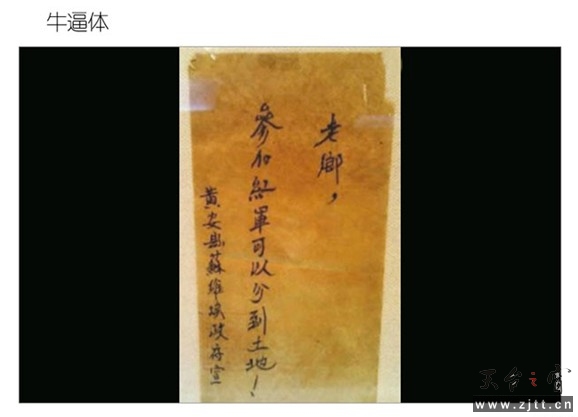 牛逼体
老鄉，
參加紅軍可以分到土地！
黃安縣蘇維埃政府宣
天台之窗
www.zjtt.cn